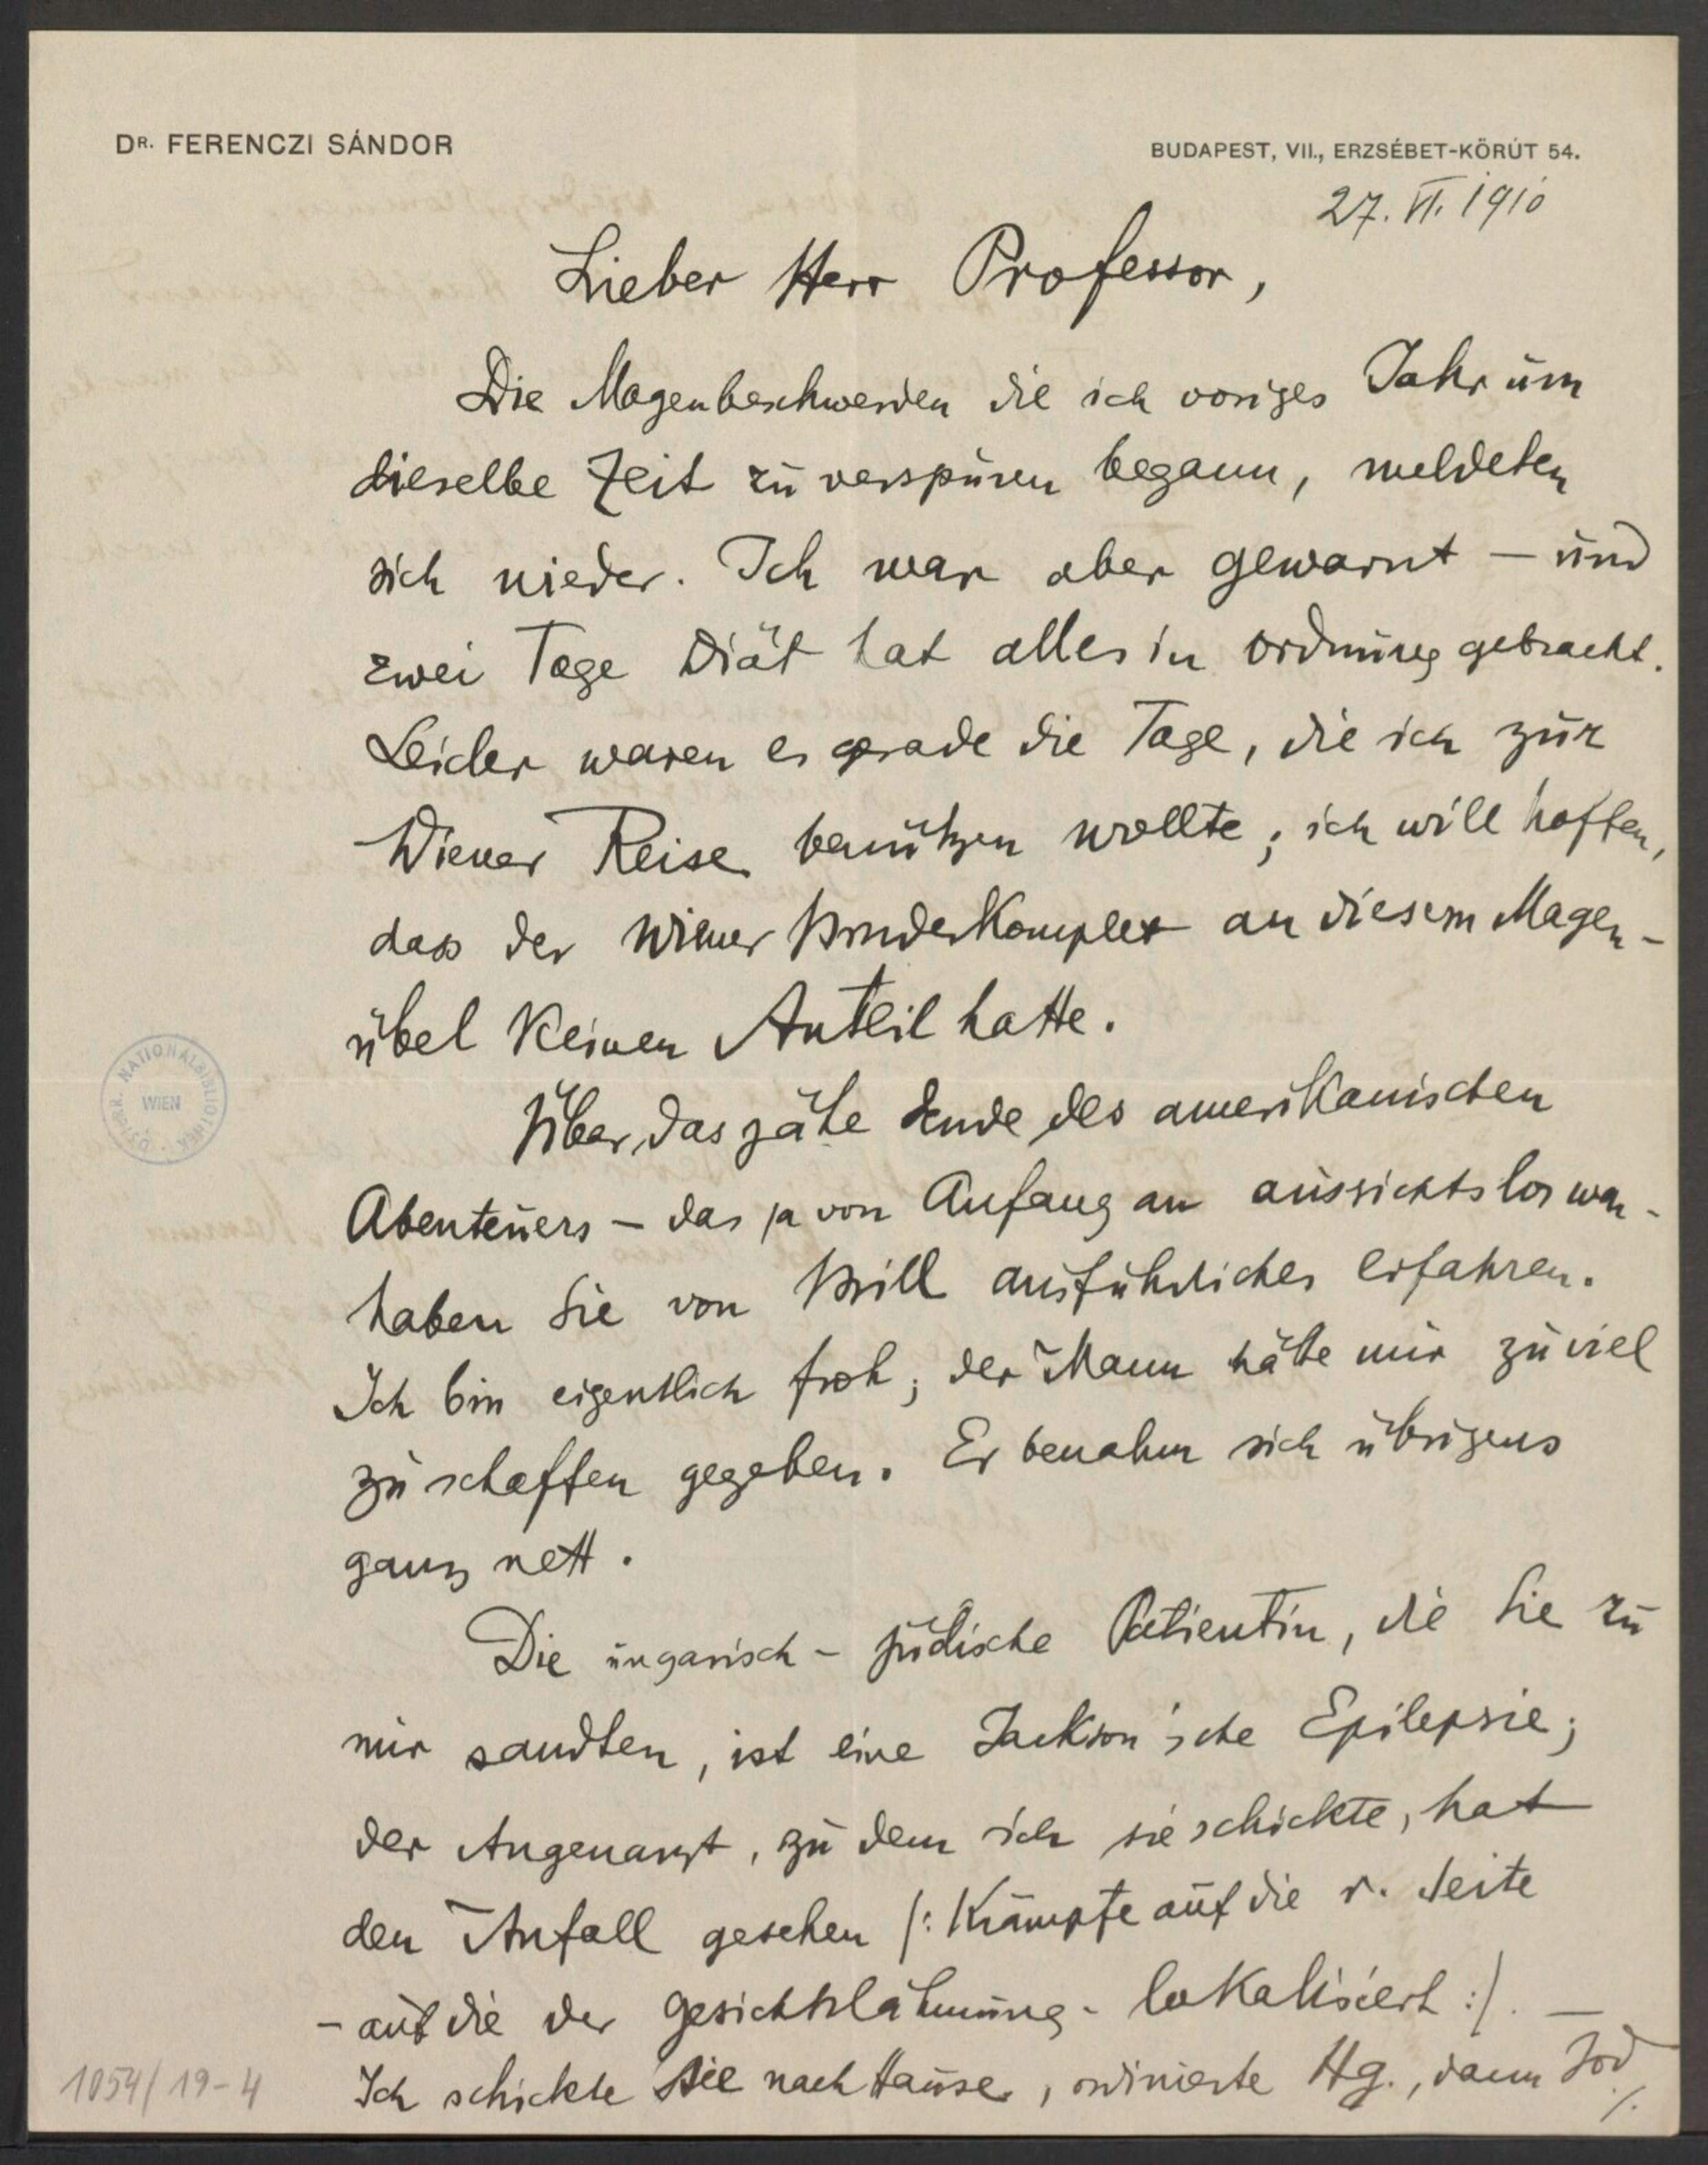 DR. FERENCZI SÁNDOR
BUDAPEST, VII., ERZSÉBET-KÖRÚT 54.
27. VI. 1910
Lieber Herr Professor,
Die Magenbeschwerden die ich voriges Jahr um
dieselbe Zeit zu verspüren begann, meldeten
sich wieder. Ich war aber gewarnt – und
zwei Tage Diät hat alles in Ordnung gebracht.
Leider waren es gerade die Tage, die ich zur
Wiener Reise benützen wollte; ich will hoffen,
dass der Wiener Bruderkomplex an diesem Magen-
übel keinen Anteil hatte.
Über das jähe Ende des amerikanischen
Abenteuers – das ja von Anfang an aussichtslos war –
haben Sie von Brill ausführliches erfahren.
Ich bin eigentlich froh; der Mann hätte mir zuviel
zu schaffen gegeben. Er benahm sich übrigens
ganz nett.
Die ungarisch-jüdische Patientin, die Sie zu
mir sandten, ist eine Jackson'sche Epilepsie;
der Augenarzt, zu dem ich sie schickte, hat
den Anfall gesehen /: Krämpfe auf die r. Seite
– auf die der Gesichtslähmung – lokalisiert :/. –
Ich schickte sie nach Hause, ordinierte Hg., dann Jod
/.
ÖSTERR. NATIONALBIBLIOTHEK
WIEN
1054/19-4